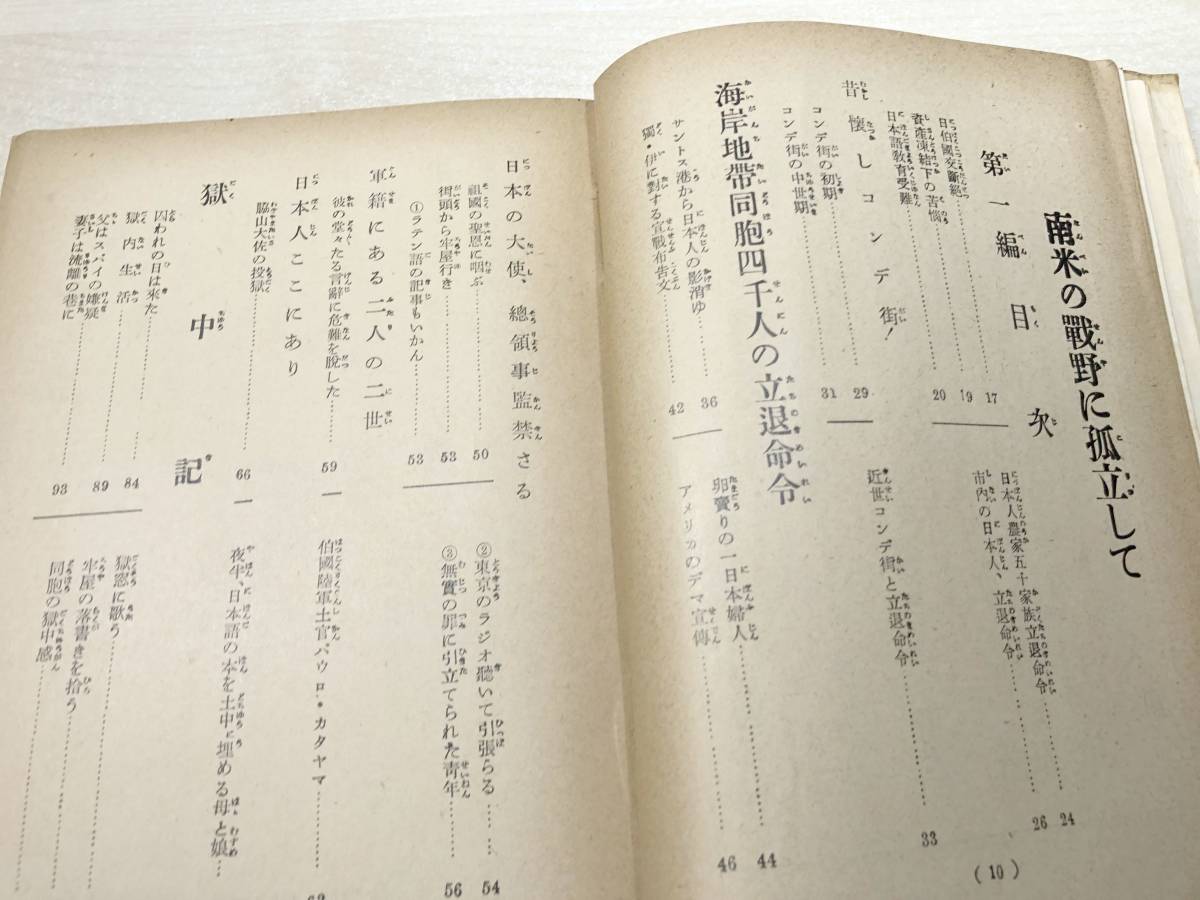 南米の戰野に孤立して
第一編 目次
日伯國交斷絕……17
資產凍結下の苦惱……19
日本語教育受難……20
日本人農家五十家族立退命令……24
市內の日本人、立退命令……26
昔懷しコンデ街！……29
コンデ街の初期……31
コンデ街の中世期
近世コンデ街と立退命令……33
海岸地帶同胞四千人の立退命令
サントス港から日本人の影消ゆ……36
獨・伊に對する宣戰布告文……42
卵賣りの一日本婦人……44
アメリカのデマ宣傳……46
(10)
日本の大使、總領事監禁さる
祖國の聖恩に咽ぶ……50
街頭から牢屋行き……53
①ラテン語の記事もいかん……53
②東京のラジオ聽いて引張らる……54
③無實の罪に引立てられた靑年……56
軍籍にある二人の二世
彼の堂々たる言辭に危難を脫した……59
伯國陸軍士官パウロ・カタヤマ……62
日本人ここにあり
脇山大佐の投獄……66
夜半、日本語の本を土中に埋める母と娘……
獄中記
囚われの日は來た……84
獄內生活……89
父はスパイの嫌疑
妻子は流離の巷に……93
獄窓に歌う……
牢屋の落書きを拾う……
同胞の獄中感……